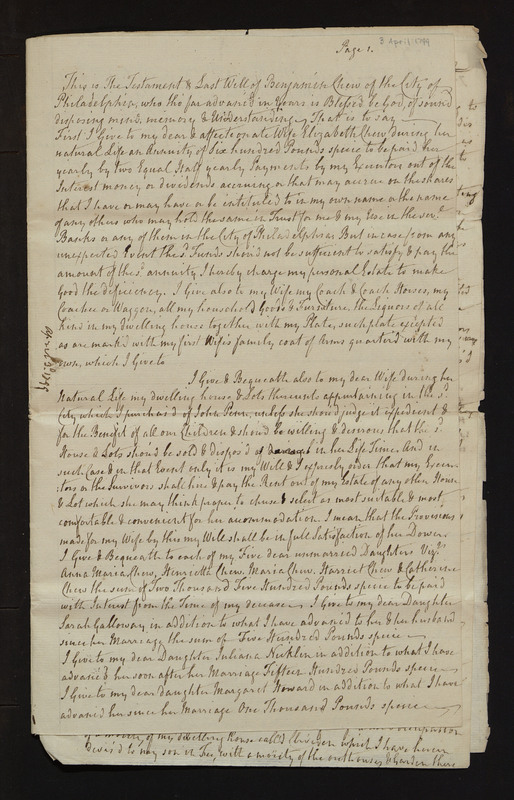 3 April 1799
Page 1.
This is The Testament & Last Will of Benjamin Chew of the City of
Philadelphia, who tho' far advanced in Years is Blessed be God, of sound
disposing mind, memory & Understanding. That is to say
First I give to my dear & affectionate Wife Elizabeth Chew during her
natural Life an Annuity of six hundred Pounds specie to be paid her
yearly by two Equal half yearly Payments by my Executors out of the
Interest money or dividends accruing or that may accrue on the shares
that I have or may have or be intituled to in my own name or the name
of any others who may hold the same in Trust for me & my Use in the
Banks or any of them in the City of Philadelphia But in case from any
unexpected Event the sd. Funds should not be sufficient to satisfy & pay the
amount of the sd. annuity I hereby charge my personal Estate to make
Good the deficiency. I Give also to my Wife my Coach & Coach Horses, my
Coachee or Waggon, all my household Goods & Furniture the Liquors of all
kind in my dwelling house together with my Plate, such plate excepted
as are mark'd with my first Wife's family coat of Arms quarter'd with my
own, which I Give to
I Give & Bequeath also to my dear Wife during her
Natural Life my dwelling house & Lots thereunto appertaining in the sd.
City which I purchas'd of John Penn, unless she should judge it expedient &
for the Benefit of all our Children & should be willing & desirous that the sd.
House & Lots should be sold & dispos'd of in her Life Time. And in
such Case & in that Event only it is my Will & I expressly order that my Execu-
tors or the Survivors shall hire & pay the Rent out of my Estate of any other House
& Lot which she may think proper to chuse & select as most suitable & most
comfortable & convenient for her accommodation. I mean that the Provisions
made for my Wife by this my Will shall be in full Satisfaction of her Dower.
I Give & Bequeath to each of my Five dear unmarried Daughters Vizt.
Anna Maria Chew, Henrietta Chew, Maria Chew, Harriet Chew & Catherine
Chew the sum of Two Thousand Five Hundred Pounds specie to be paid
with Interest from the Time of my decease. I Give to my dear Daughter
Sarah Galloway in addition to what I have advanced to her & her husband
since her Marriage the sum of Five Hundred Pounds specie
I Give to my dear Daughter Juliana Nicklin in addition to what I have
advanc'd her soon after her Marriage Fifteen Hundred Pounds specie
I Give to my dear daughter Margaret Howard in addition to what I have
advanced her since her Marriage One Thousand Pounds specie
of my dwelling house call'd Cliveden which I have herein
devis'd to my son in Fee, with a moiety of the outhouses & Garden there